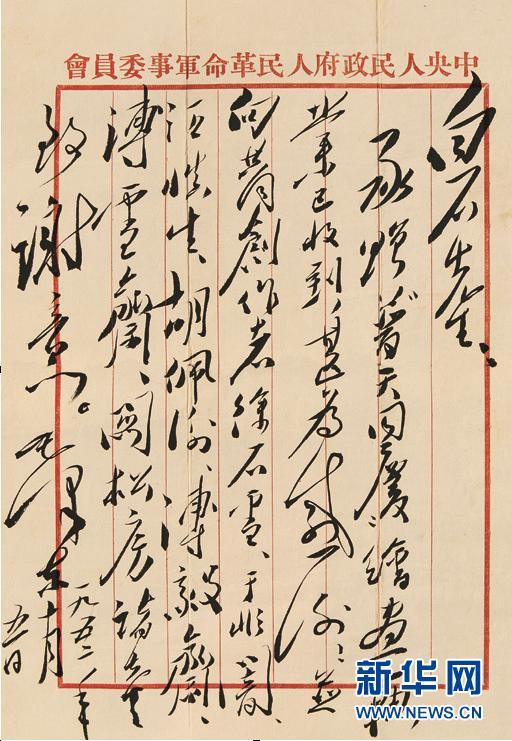 中央人民政府人民革命軍事委員會
白石先生:
承贈普天同慶繪畫一軸,
業已收到,甚為感謝!並
向共同創作者徐石雪、于非闇、
汪慎生、胡佩衡、溥毅齋、
溥雪齋、關松房諸先生
致謝意。毛澤東
一九五二年
十月
五日
新华网
WWW.NEWS.CN